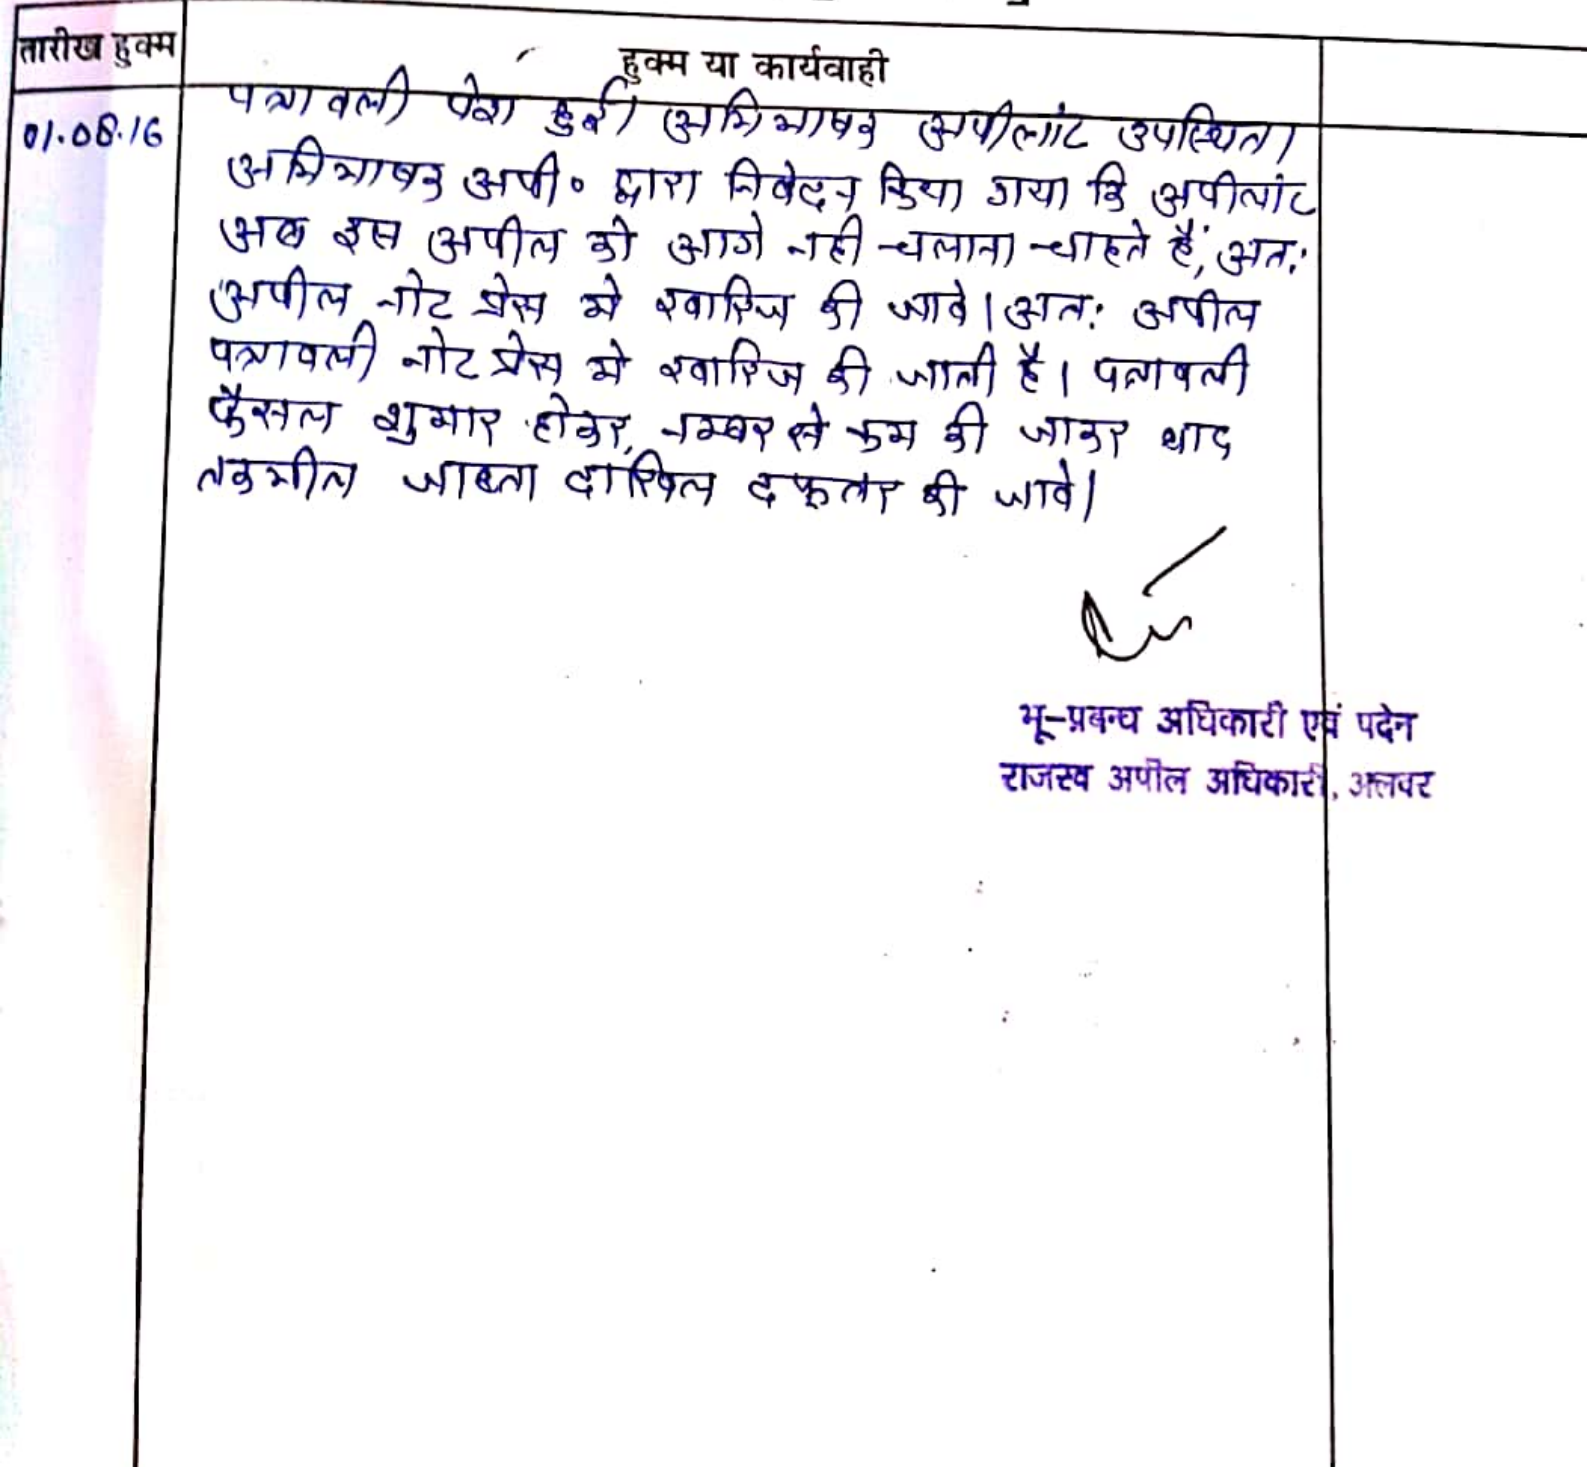 तारीख हुक्म
हुक्म या कार्यवाही
01.08.16
पत्रावली पेश हुई। अभिभाषक अपीलांट उपस्थित।
अभिभाषक अपी० द्वारा निवेदन किया गया कि अपीलांट
अब इस अपील को आगे नही चलाना चाहते हैं, अतः
अपील नोट प्रेस मे खारिज की जावे। अतः अपील
पत्रावली नोट प्रेस मे खारिज की जाती है। पत्रावली
फैसल शुमार होकर, नम्बर से कम की जाकर बाद
तकमील जाब्ता दाखिल दफ्तर की जावे।
भू-प्रबन्ध अधिकारी एवं पदेन
राजस्व अपील अधिकारी, अलवर